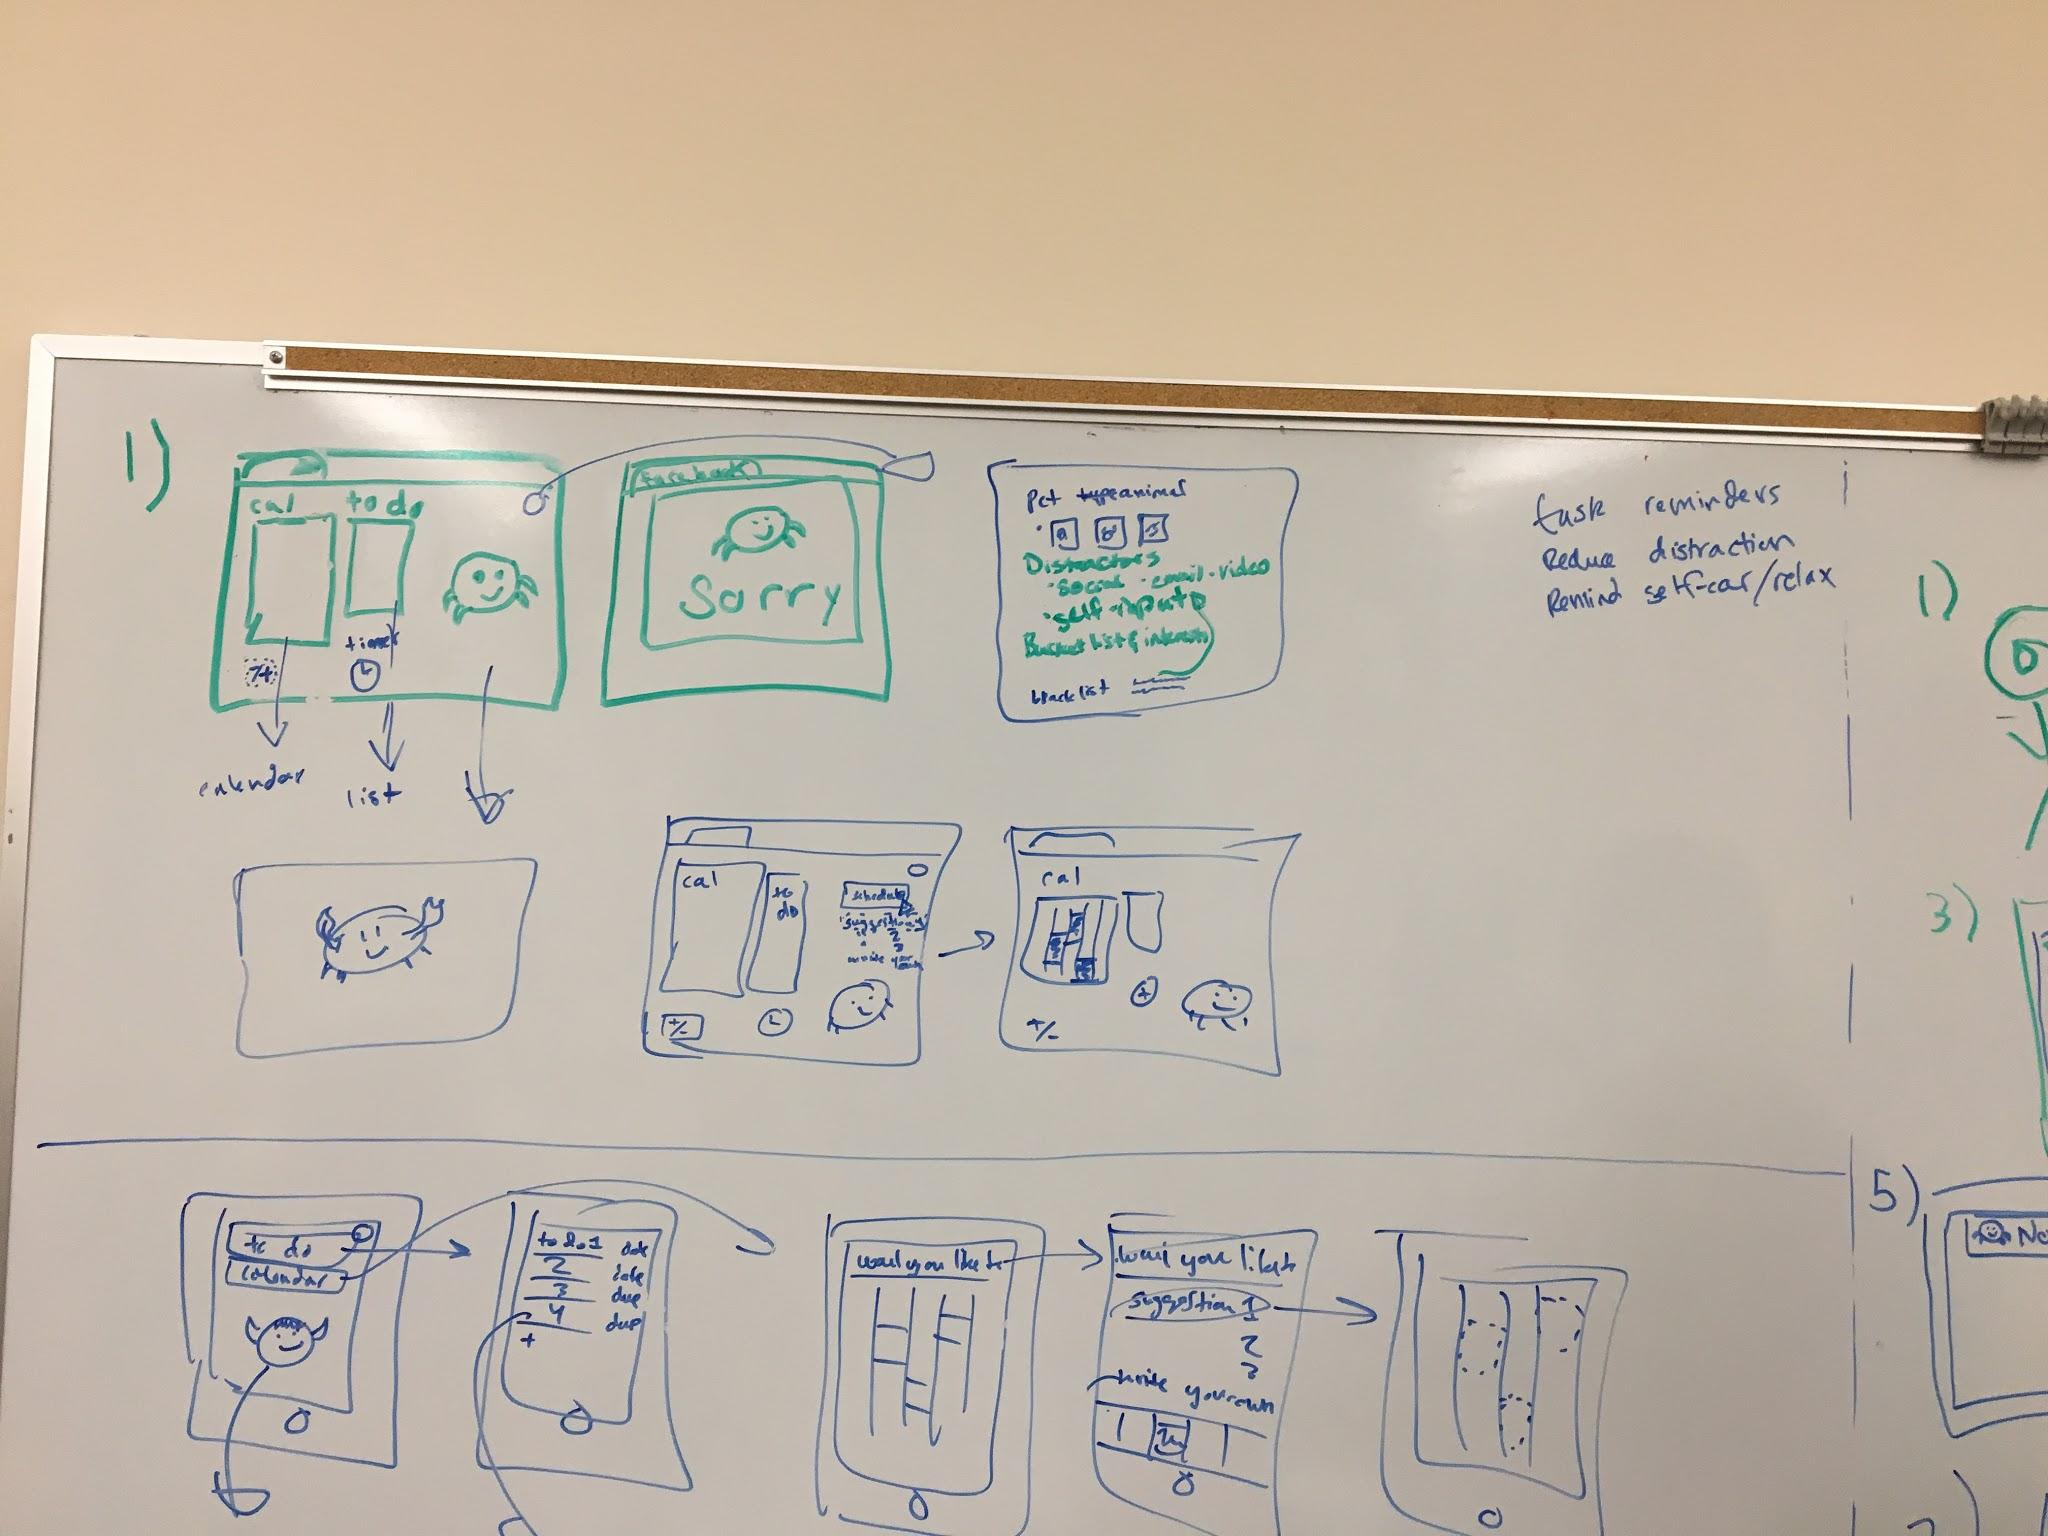 1)
cal to do
timer
7+
calendar
list
facebook
Sorry
Pet type animal
Distractors
• social • email • video
• self-input
Bucket list & interests
blacklist
task reminders
Reduce distraction
Remind self-car/relax
cal
to
do
schedule
suggestions
2
3
write your
+/-
cal
+/-
to do
calendar
to do 1 date
2 date
3 due
4 due
+
would you like to
would you like to
suggestion 1
2
3
write your own
1)
3)
5)
No